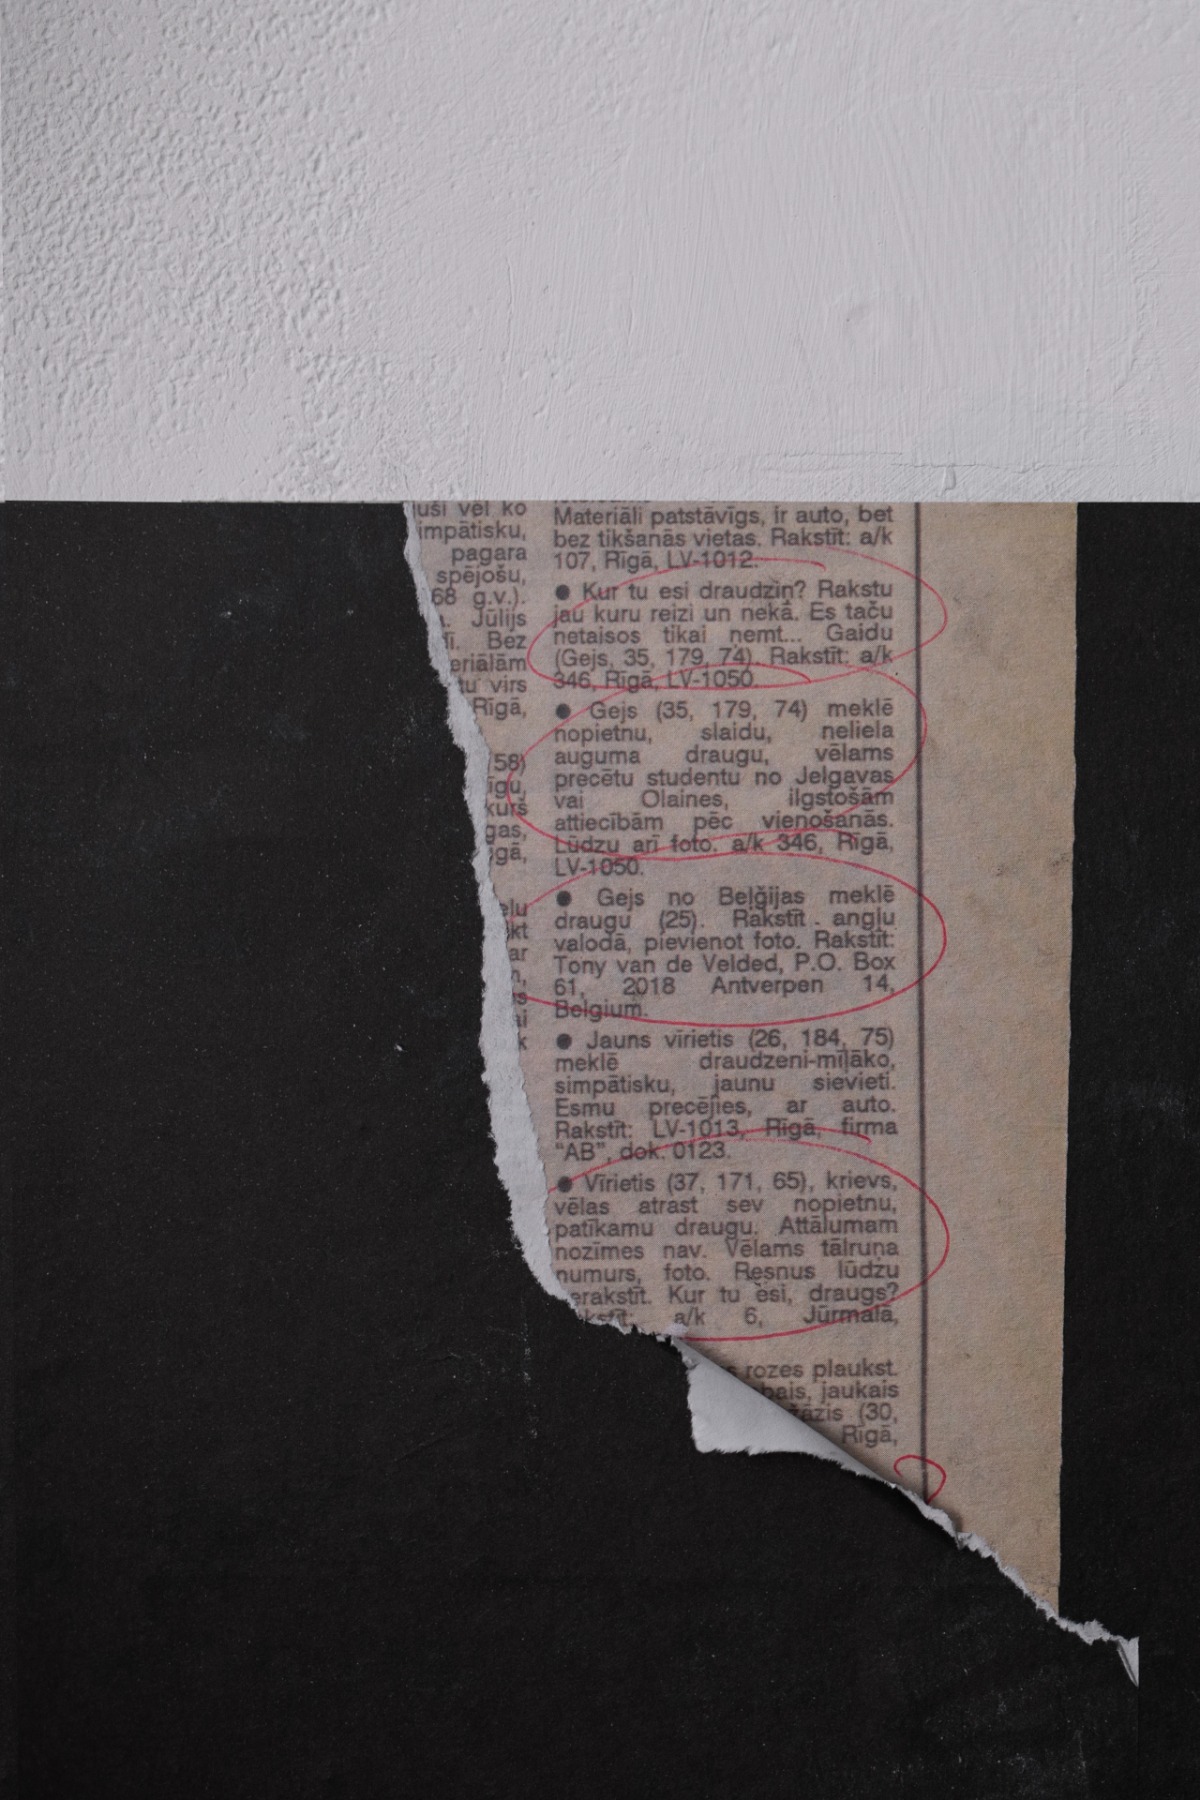 uši vēl ko
impātisku,
pagara
spējošu,
68 g.v.).
Jūlijs
Bez
eriālām
tu virs
Rīgā,
58)
īgu,
kurš
gas,
gā,
elu
kt
ar
k
Materiāli patstāvīgs, ir auto, bet
bez tikšanās vietas. Rakstīt: a/k
107, Rīgā, LV-1012.
● Kur tu esi draudziņ? Rakstu
jau kuru reizi un nekā. Es taču
netaisos tikai ņemt... Gaidu
(Gejs, 35, 179, 74). Rakstīt: a/k
346, Rīgā, LV-1050.
● Gejs (35, 179, 74) meklē
nopietnu, slaidu, neliela
auguma draugu, vēlams
precētu studentu no Jelgavas
vai Olaines, ilgstošām
attiecībām pēc vienošanās.
Lūdzu arī foto. a/k 346, Rīgā,
LV-1050.
● Gejs no Beļģijas meklē
draugu (25). Rakstīt angļu
valodā, pievienot foto. Rakstīt:
Tony van de Velded, P.O. Box
61, 2018 Antverpen 14,
Belgium.
● Jauns vīrietis (26, 184, 75)
meklē draudzeni-mīļāko,
simpātisku, jaunu sievieti.
Esmu precējies, ar auto.
Rakstīt: LV-1013, Rīgā, firma
“AB”, dok. 0123.
● Vīrietis (37, 171, 65), krievs,
vēlas atrast sev nopietnu,
patīkamu draugu. Attālumam
nozīmes nav. Vēlams tālruņa
numurs, foto. Resnus lūdzu
erakstīt. Kur tu esi, draugs?
kstīt: a/k 6, Jūrmala,
s rozes plaukst.
bais, jaukais
žāzis (30,
Rīgā,